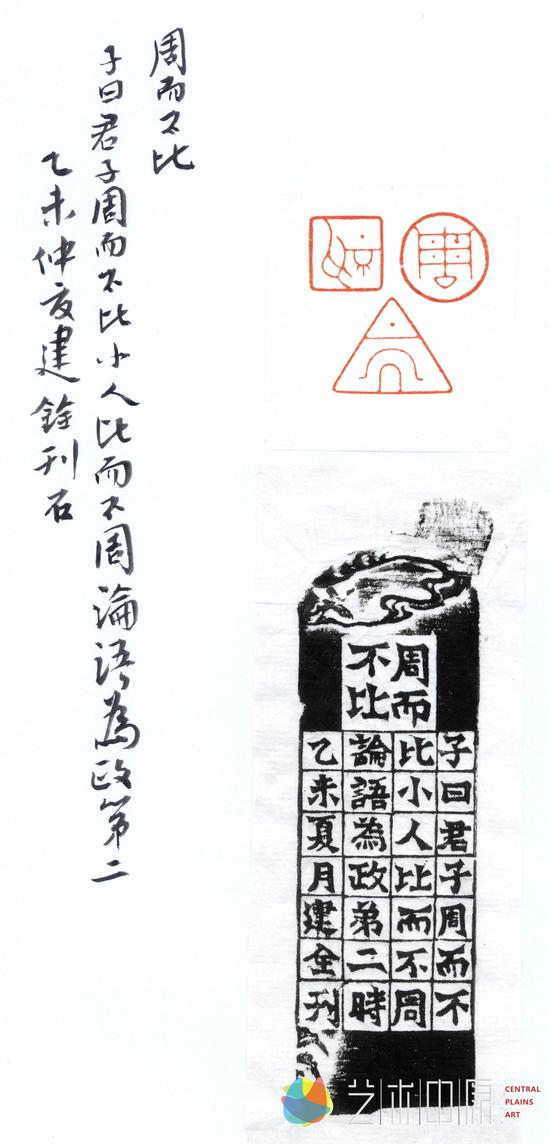 周而不比
子曰君子周而不比小人比而不周論語為政第二
乙未仲夏建銓刊石
周而
不比
子曰君子周而不
比小人比而不周
論語為政弟二時
乙未夏月建全刊
艺术中原
CENTRAL
PLAINS
ART